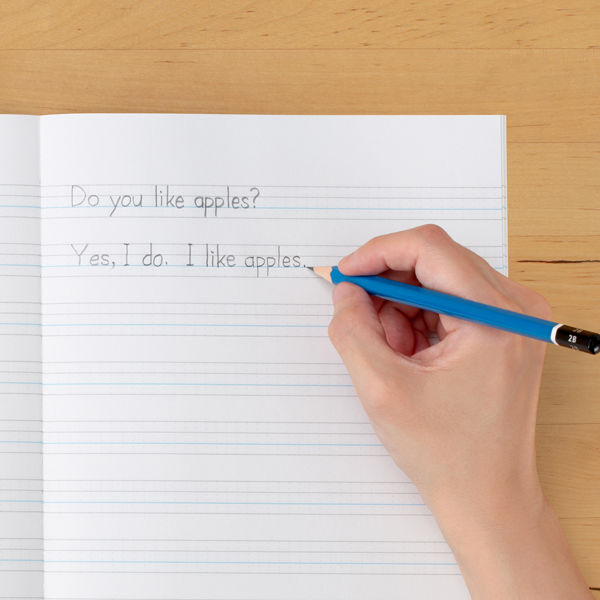 Do you like apples?
Yes, I do. I like apples.
2B